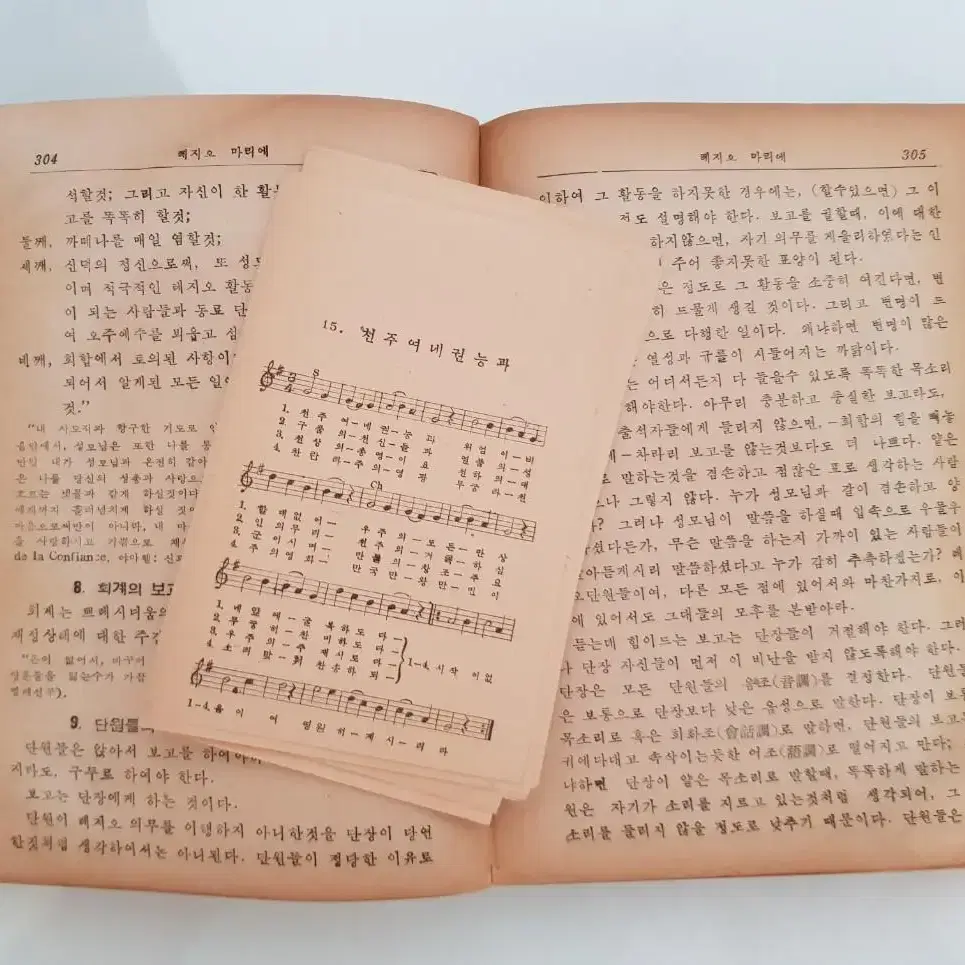 304
레지오 마리에
석할것; 그리고 자신이 한 활
고를 똑똑히 할것;
둘째, 까떼나를 매일 염할것;
세째, 신덕의 정신으로써, 또 성
이며 적극적인 레지오 활동
이 되는 사람들과 동료 단
여 오주예수를 뵈옵고 섬
네째, 회합에서 토의된 사항이
되어서 알게된 모든 일
것.”
“내 시도직과 항구한 기도로
음밖에서, 성모님은 또한 나를 통
만일 내가 성모님과 온전히 같아
은 나를 당신의 성총과 사랑으
흐르는 냇물과 같게 하실것이다
에까지 흘러넘치게 하실 것이
마음으로써만이 아니라, 내 마
을 사랑하시고 기쁨으로
de la Confiance,
8. 회계의 보고
회계는 쁘레시디움의
재정상태에 대한
“돈이 없어서,
영혼들을 잃는수가 가끔
9. 단원들
단원들은 앉아서 보고를 하여야
지라도, 구두로 하여야 한다.
보고는 단장에게 하는 것이다.
단원이 레지오 의무를 이행하지 아니한것을 단장이 당연
한짓처럼 생각하여서는 아니된다. 단원들이 정당한 이유로
15. 천주여네권능과
1. 천주 여-네권-능 과 위엄 이-비
2. 구품
3. 천상
4. 찬란
Ch
1. 할 데 없 이- 우 주 의-모 든-만 상
4. 주 의 영 회- 만 국 만-왕 만-민 이
1. 네 앞 에-굴 복 하 도 다-
2. 무 궁 히-찬 미 하 도 다-
3. 우 주 의-주 재 시 로 다-
4. 소 리 맞-춰 찬 송 하 되-
1-4. 시 작 이 없
1-4. 음 이 여 영원 히-계 시-리 라
레지오 마리에
305
이하여 그 활동을 하지못한 경우에는, (할수있으면) 그 이
정도 설명해야 한다. 보고를 궐할때, 이에 대한
하지않으면, 자기 의무를 게을리하였다는 인
주어 좋지못한 표양이 된다.
은 정도로 그 활동을 소중히 여긴다면, 변
히 드물게 생길 것이다. 그리고 변명이 드
으로 다행한 일이다. 왜냐하면 변명이 많은
열성과 규률이 시들어지는 까닭이다.
는 어디서든지 다 들을수 있도록 똑똑한 목소리
해야한다. 아무리 충분하고 충실한 보고라도,
출석자들에게 들리지 않으면,—회합의 힘을 빼놓
에—차라리 보고를 않는것보다도 더 나쁘다. 얕은
로 말하는것을 겸손하고 점잖은 표로 생각하는 사람
나 그렇지 않다. 누가 성모님과 같이 겸손하고 양
? 그러나 성모님이 말씀을 하실때 입속으로 우물우
셨다든가, 무슨 말씀을 하는지 가까이 있는 사람들이
아듣게시리 말씀하셨다고 누가 감히 추측하겠는가? 레
오단원들이여, 다른 모든 점에 있어서와 마찬가지로, 이
에 있어서도 그대들의 모후를 본받아라.
듣는데 힘이드는 보고는 단장이 거절해야 한다. 그러
나 단장 자신들이 먼저 이 비난을 받지 않도록해야 한다.
단장은 모든 단원들의 음조(音調)를 결정한다. 단원들
은 보통으로 단장보다 낮은 음성으로 말한다. 단장이 보통
목소리로 혹은 회화조(會話調)로 말하면, 단원들의 보고는
귀에다대고 속삭이는듯한 어조(語調)로 떨어지고 만다;
냐하면 단장이 얕은 목소리로 말할때, 똑똑하게 말하는
원은 자기가 소리를 지르고 있는것처럼 생각되어, 그
소리를 들리지 않을 정도로 낮추기 때문이다. 단원들은